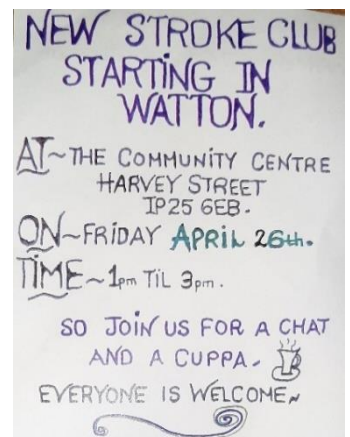 NEW STROKE CLUB
STARTING IN
WATTON.
AT~THE COMMUNITY CENTRE
HARVEY STREET
IP25 6EB.
ON~FRIDAY APRIL 26th.
TIME~1pm TIL 3pm.
SO JOIN US FOR A CHAT
AND A CUPPA.
EVERYONE IS WELCOME~